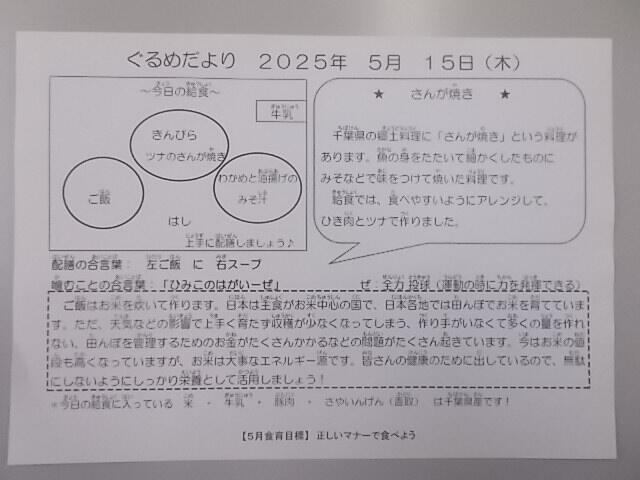 ぐるめだより　2025年　5月　15日（木）
～今日の給食～
牛乳
きんぴら
ツナのさんが焼き
ご飯
わかめと油揚げの
みそ汁
はし
上手に配膳しましょう♪
★　さんが焼き　★
千葉県の郷土料理に「さんが焼き」という料理が
あります。魚の身をたたいて細かくしたものに
みそなどで味をつけて焼いた料理です。
給食では、食べやすいようにアレンジして、
ひき肉とツナで作りました。
配膳の合言葉：　左ご飯　に　右スープ
噛むことの合言葉：「ひみこのはがいーぜ」　ぜ：全力投球（運動の時に力を発揮できる）
ご飯はお米を炊いて作ります。日本は主食がお米中心の国で、日本各地では田んぼでお米を育てています。
ただ、天気などの影響で上手く育たず収穫が少なくなってしまう、作り手がいなくて多くの量を作れ
ない、田んぼを管理するためのお金がたくさんかかるなどの問題がたくさん起きています。今はお米の値
段も高くなっていますが、お米は大事なエネルギー源です。皆さんの健康のために出しているので、無駄
にしないようにしっかり栄養として活用しましょう！
※今日の給食に入っている　米　・　牛乳　・　豚肉　・　さやいんげん（直取）　は千葉県産です！
【5月食育目標】正しいマナーで食べよう